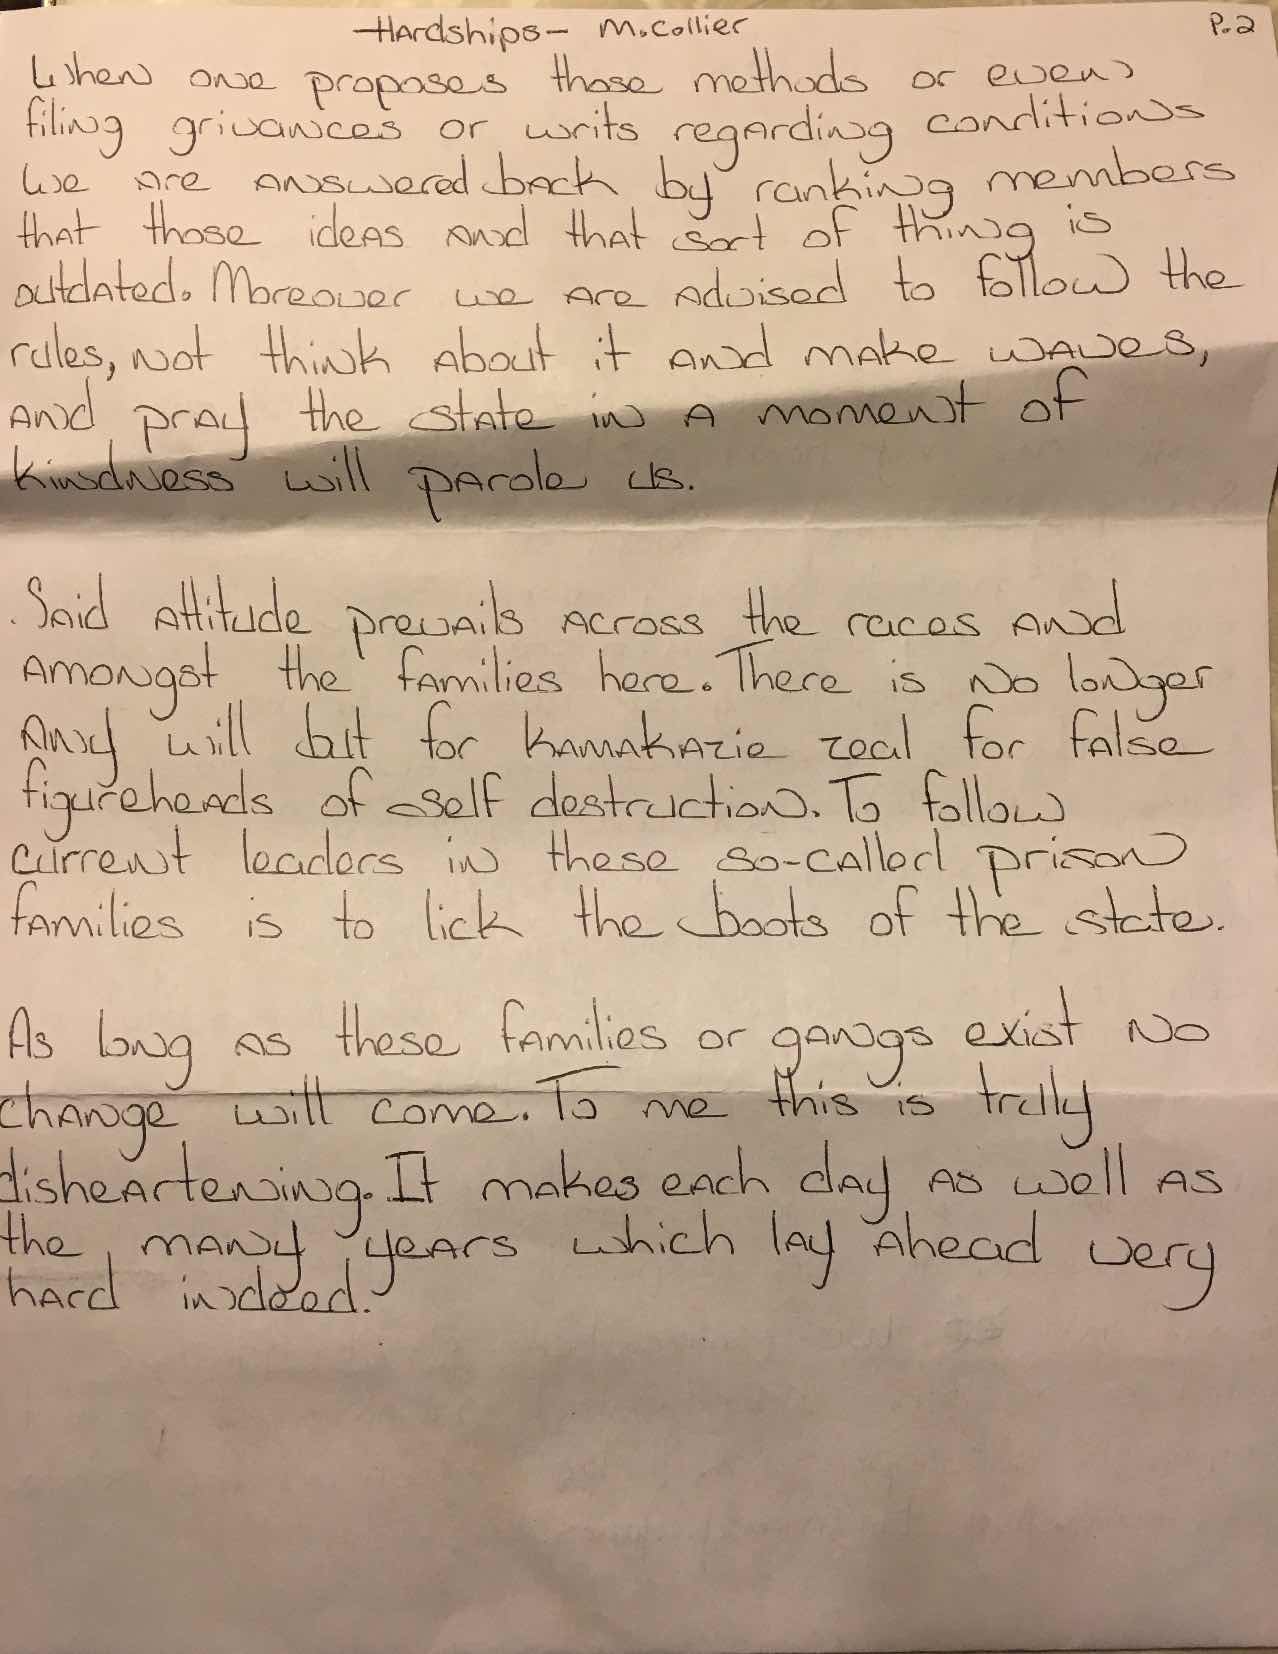 -Hardships- M.Collier P.2
When one proposes those methods or even
filing grivances or writs regarding conditions
we are answered back by ranking members
that those ideas and that sort of thing is
outdated. Moreover we are advised to follow the
rules, not think about it and make waves,
and pray the state in a moment of
kindness will parole us.
Said attitude prevails across the races and
amongst the families here. There is no longer
any will but for kamakazie zeal for false
figureheads of self destruction. To follow
current leaders in these so-called prison
families is to lick the boots of the state.
As long as these families or gangs exist no
change will come. To me this is trully
disheartening. It makes each day as well as
the many years which lay ahead very
hard indeed.